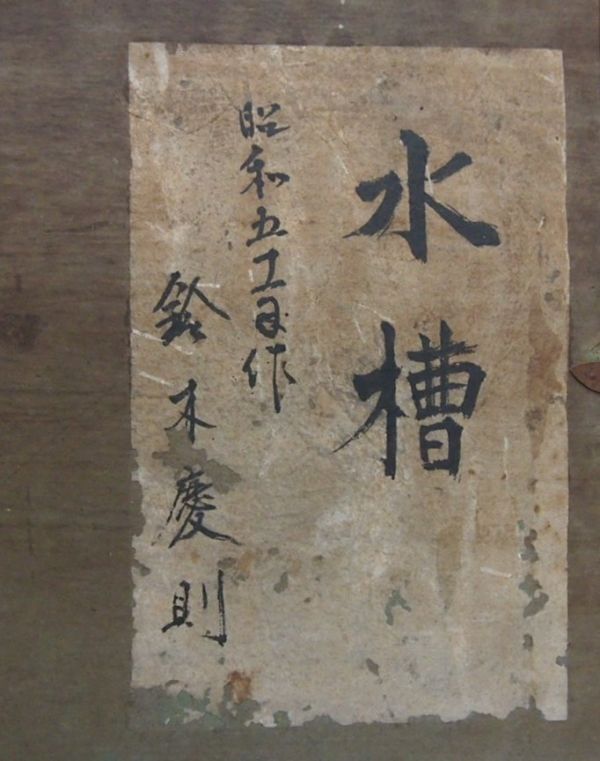 水槽
昭和五十一年作
鈴木慶則